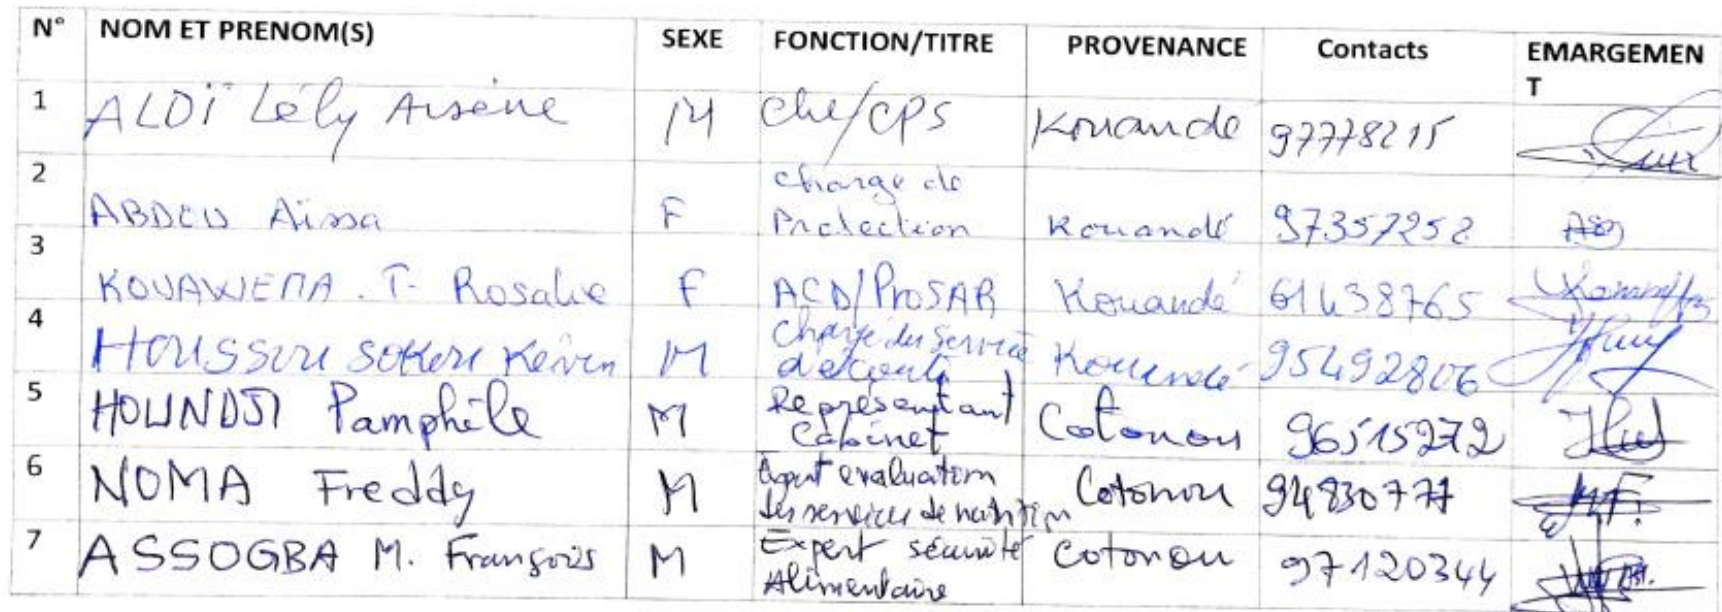 N° NOM ET PRENOM(S) SEXE FONCTION/TITRE PROVENANCE Contacts EMARGEMEN
T
1 ALDÏ Lély Arsène M Che/CPS Kouandé 97778215
2 ABDOU Aïssa F chargé de
Protection Kouandé 97357252
3 KOUAWIEMA . T. Rosalie F ACD/ProSAR Kouandé 61438765
4 HOUSSOU Kévin M Chargé du Service
d'écoute Kouandé 95492806
5 HOUNDJI Pamphile M Représentant
Cabinet Cotonou 96515272
6 NOMA Freddy M Agent evaluation
des services de nutrition Cotonou 94830777
7 ASSOGBA M. François M Expert sécurité
Alimentaire Cotonou 97120344